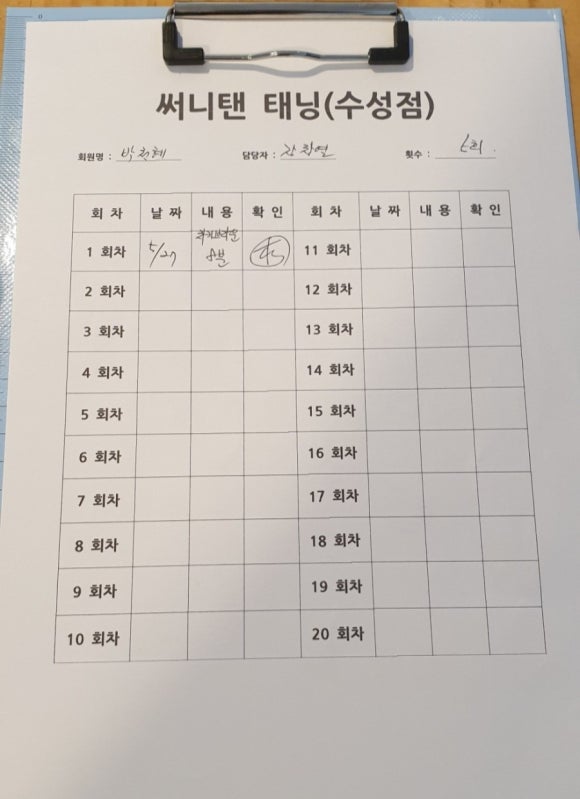 써니탠 태닝(수성점)
회원명 : 담당자 : 횟수 :
회 차 날 짜 내 용 확 인 회 차 날 짜 내 용 확 인
1 회차 5/27 8분 11 회차
2 회차 12 회차
3 회차 13 회차
4 회차 14 회차
5 회차 15 회차
6 회차 16 회차
7 회차 17 회차
8 회차 18 회차
9 회차 19 회차
10 회차 20 회차